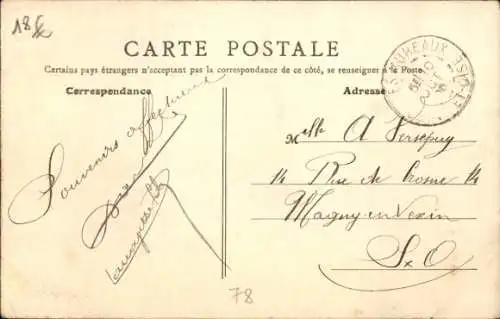 18
CARTE POSTALE
Certains pays étrangers n'acceptant pas la correspondance de ce côté, se renseigner à la Poste
Correspondance
Adresse
LES MUREAUX
SEINE-ET-OISE
Souvenirs affectueux
Melle A Persepuy
14 Rue de Crosne 14
Magny-en-Vexin
S x O
78